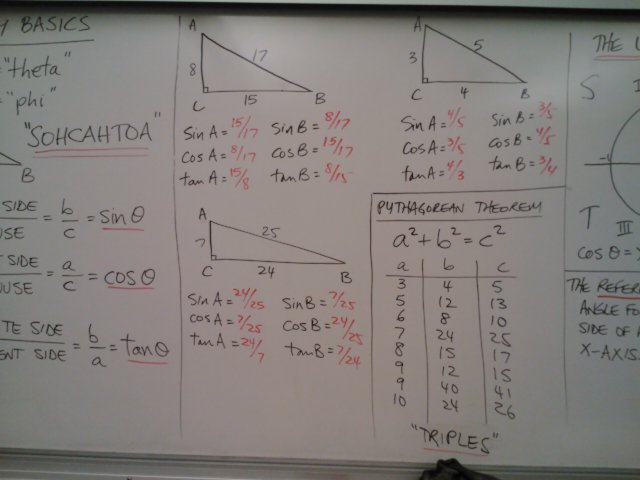 Y BASICS
= "theta"
= "phi"
"SOHCAHTOA"
B
SIDE
USE
= b/c = sinθ
T SIDE
NUSE
= a/c = cosθ
TE SIDE
ENT SIDE
= b/a = tanθ
A
8
17
C
15
B
SinA = 15/17
SinB = 8/17
cosA = 8/17
cosB = 15/17
tanA = 15/8
tanB = 8/15
A
7
25
C
24
B
SinA = 24/25
SinB = 7/25
cosA = 7/25
cosB = 24/25
tanA = 24/7
tanB = 7/24
A
3
5
C
4
B
SinA = 4/5
SinB = 3/5
cosA = 3/5
cosB = 4/5
tanA = 4/3
tanB = 3/4
PYTHAGOREAN THEOREM
a² + b² = c²
a b c
3 4 5
5 12 13
6 8 10
7 24 25
8 15 17
9 12 15
9 40 41
10 24 26
"TRIPLES"
THE U
S
-1
T
III
cosθ =
THE REFER
ANGLE FO
SIDE OF A
X-AXIS.